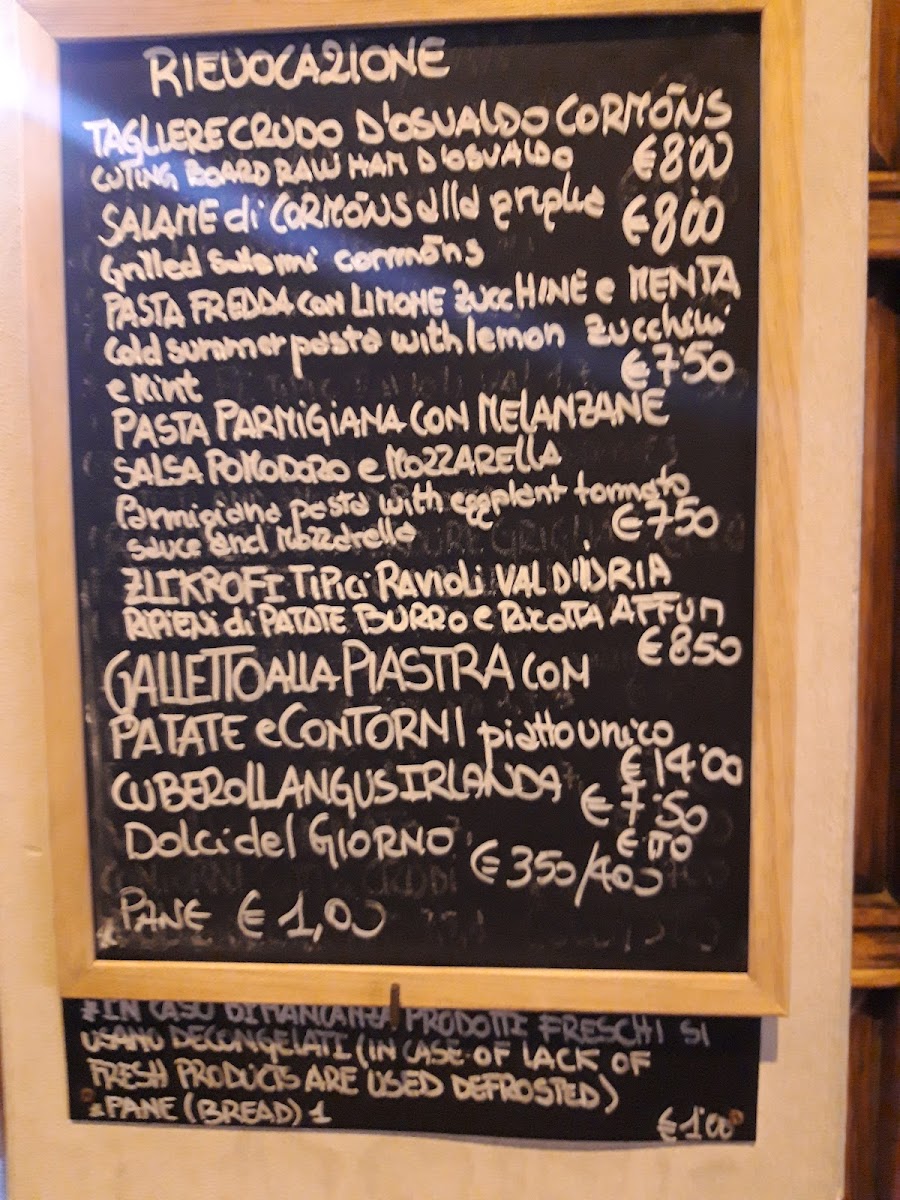 RIEVOCAZIONE
TAGLIERE CRUDO D'OSVALDO CORMÕNS
CUTING BOARD RAW HAM D'OSVALDO €8'00
SALAME di CORMÕNS alla griglia €8'00
Grilled salami cormõns
PASTA FREDDA con LIMONE ZUCCHINE e MENTA
Cold summer pasta with lemon zucchini
e Mint €7'50
PASTA PARMIGIANA CON MELANZANE
SALSA POMODORO e MOZZARELLA
Parmigiana pasta with eggplant tomato
sauce and Mozzarella €750
ZLIKROFI TiPici RavioLi VAL D'IDRIA
RIPIENI di PATATE BURRO e RICOTTA AFFUM
€850
GALLETTO ALLA PIASTRA CON
PATATE e CONTORNI piatto unico
€14'00
CUBEROLL ANGUS IRLANDA €7'50
Dolci del GIORNO €350/400
PANE €1,00
*IN CASO DI MANCANZA PRODOTTI FRESCHI SI
USANO DECONGELATI (IN CASE OF LACK OF
FRESH PRODUCTS ARE USED DEFROSTED)
*PANE (BREAD) 1 €1'00